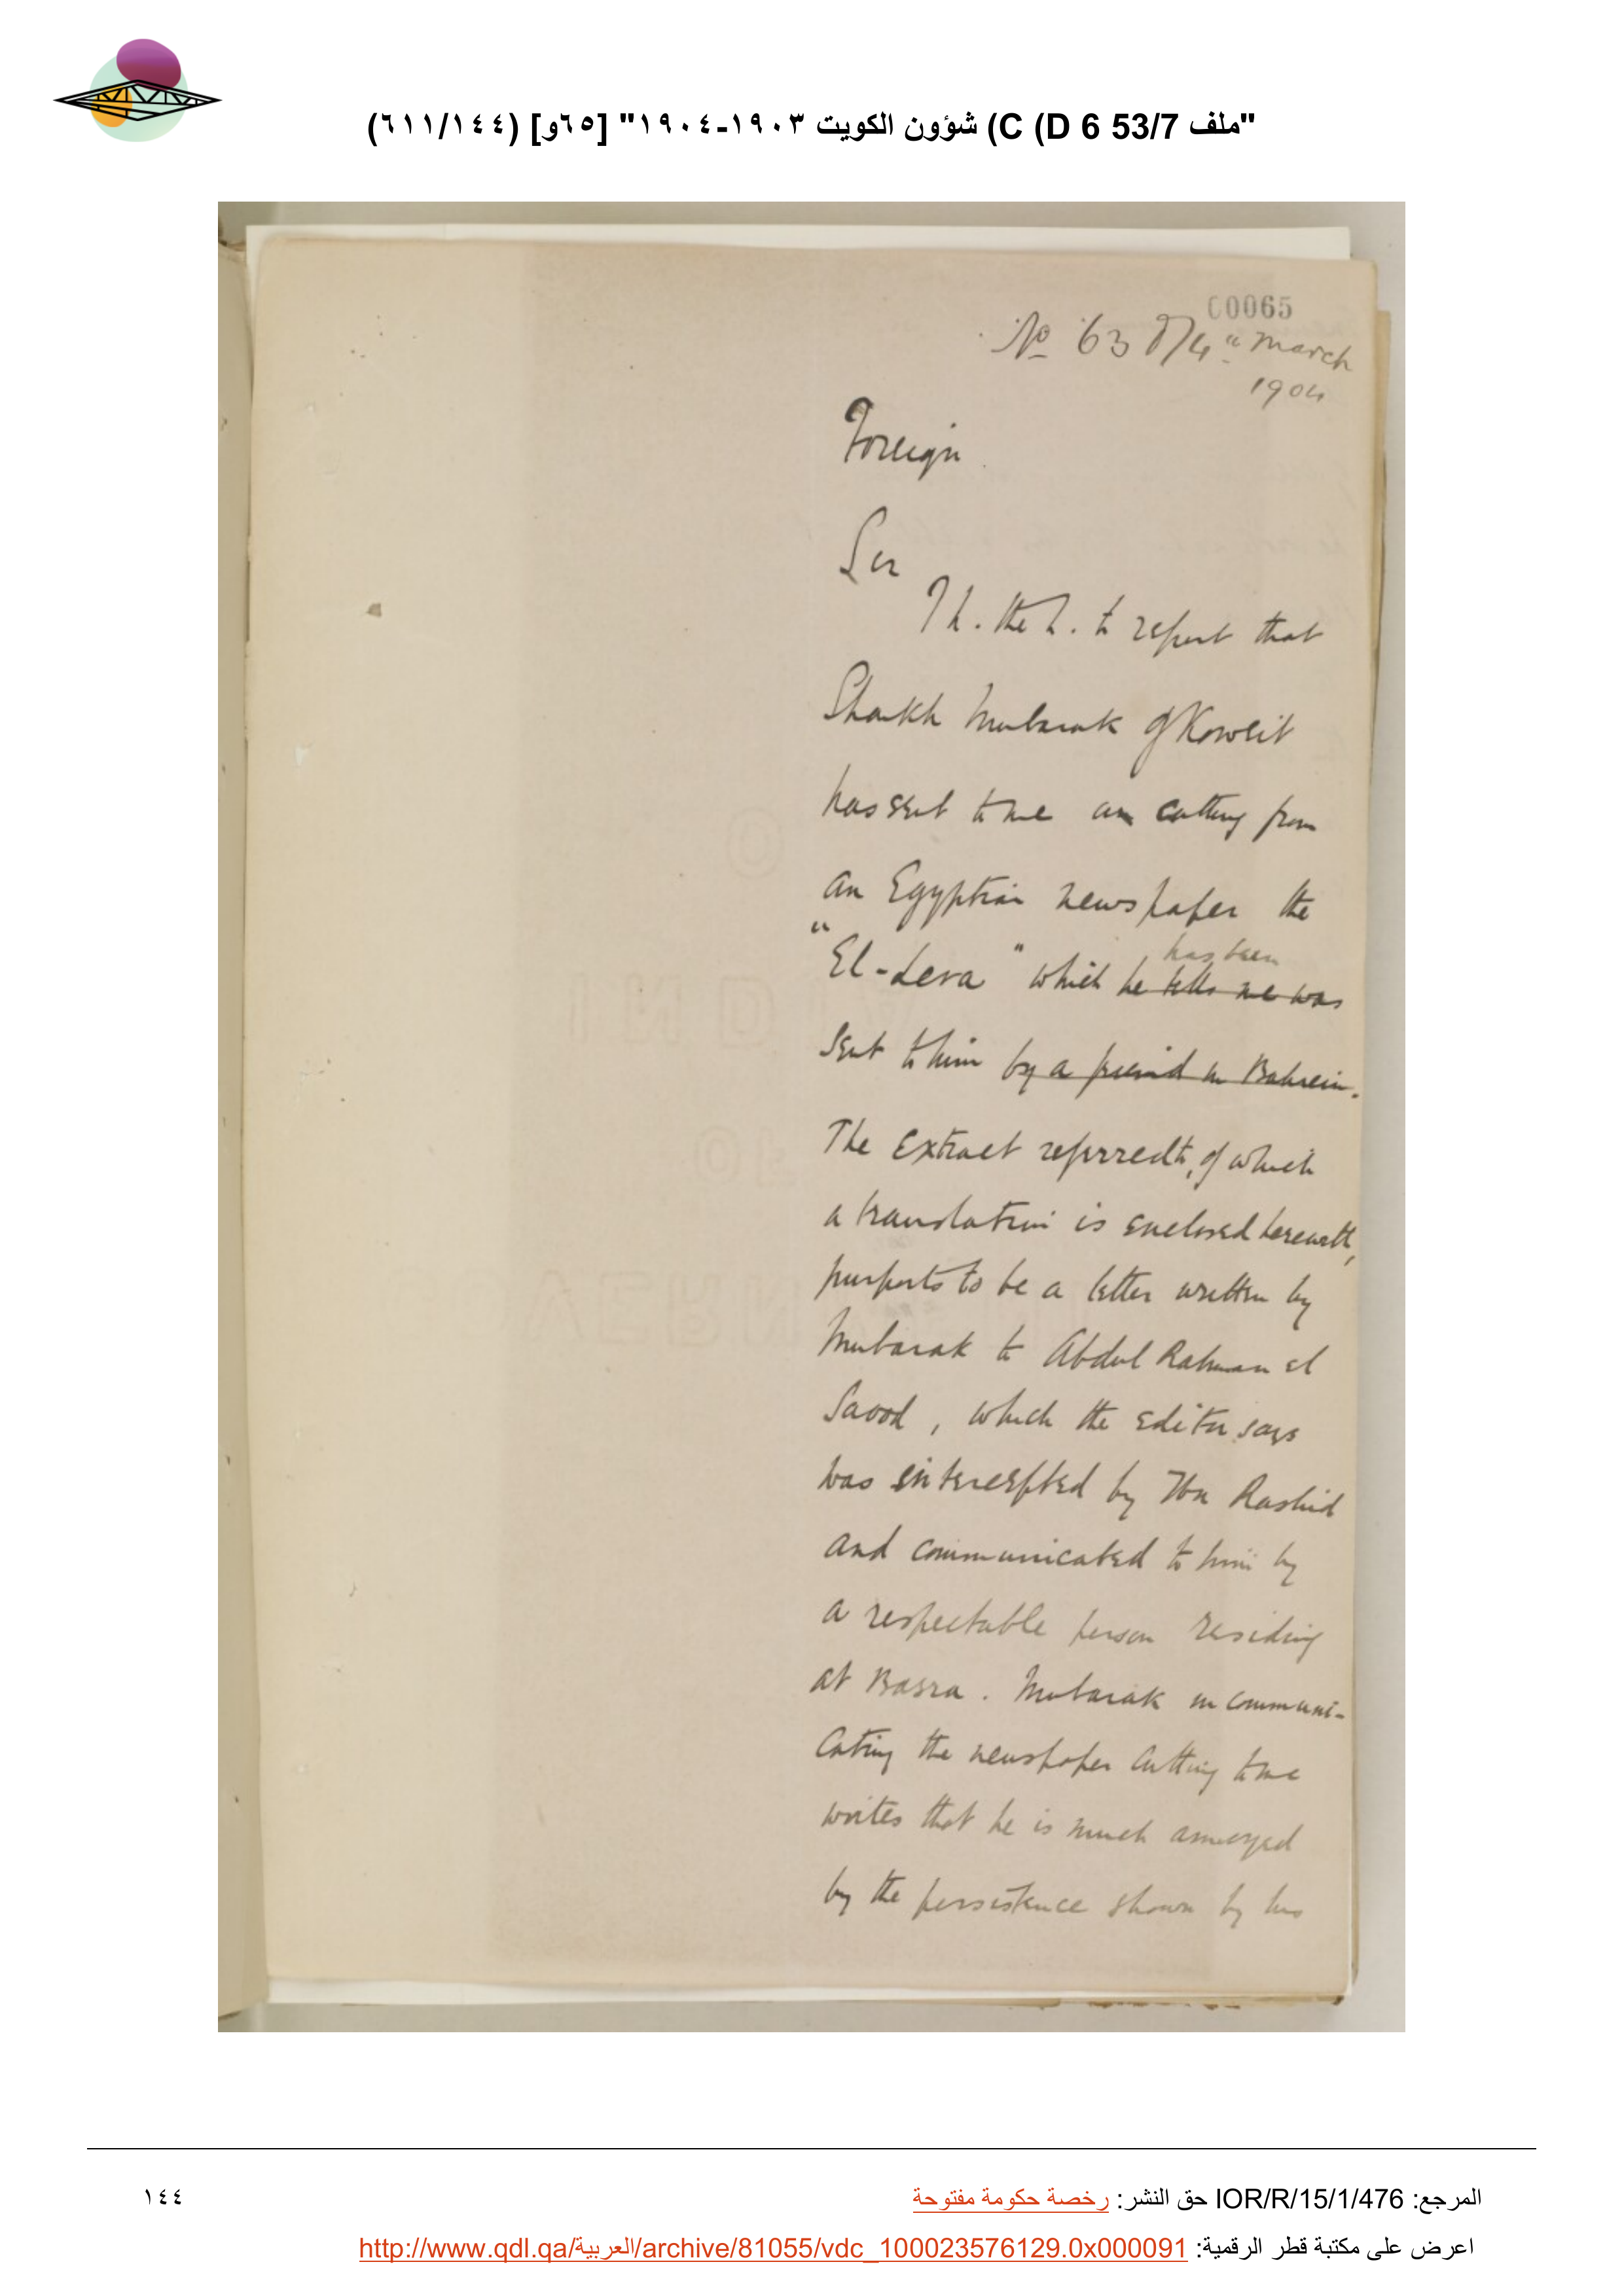 "ملف 53/7 D 6) C) شؤون الكويت ١٩٠٣-١٩٠٤" [٦٥و] (٦١١/١٤٤)
00065
No 63 d/4th March
1904
Foreign
Sir
I h. the h. to report that
Shaikh Mubarak of Koweit
has sent to me a cutting from
an Egyptian newspaper the
has been
"El-Leva" which he tells me was
sent to him by a friend in Bahrein.
The Extract referred to, of which
a translation is enclosed herewith,
purports to be a letter written by
Mubarak to Abdul Rahman el
Saood, which the Editor says
was intercepted by Ibn Rashid
and communicated to him by
a respectable person residing
at Basra. Mubarak in communi-
cating the newspaper cutting to me
writes that he is much annoyed
by the persistence shown by his
المرجع: IOR/R/15/1/476 حق النشر: رخصة حكومة مفتوحة
١٤٤
اعرض على مكتبة قطر الرقمية: http://www.qdl.qa/العربية/archive/81055/vdc_100023576129.0x000091